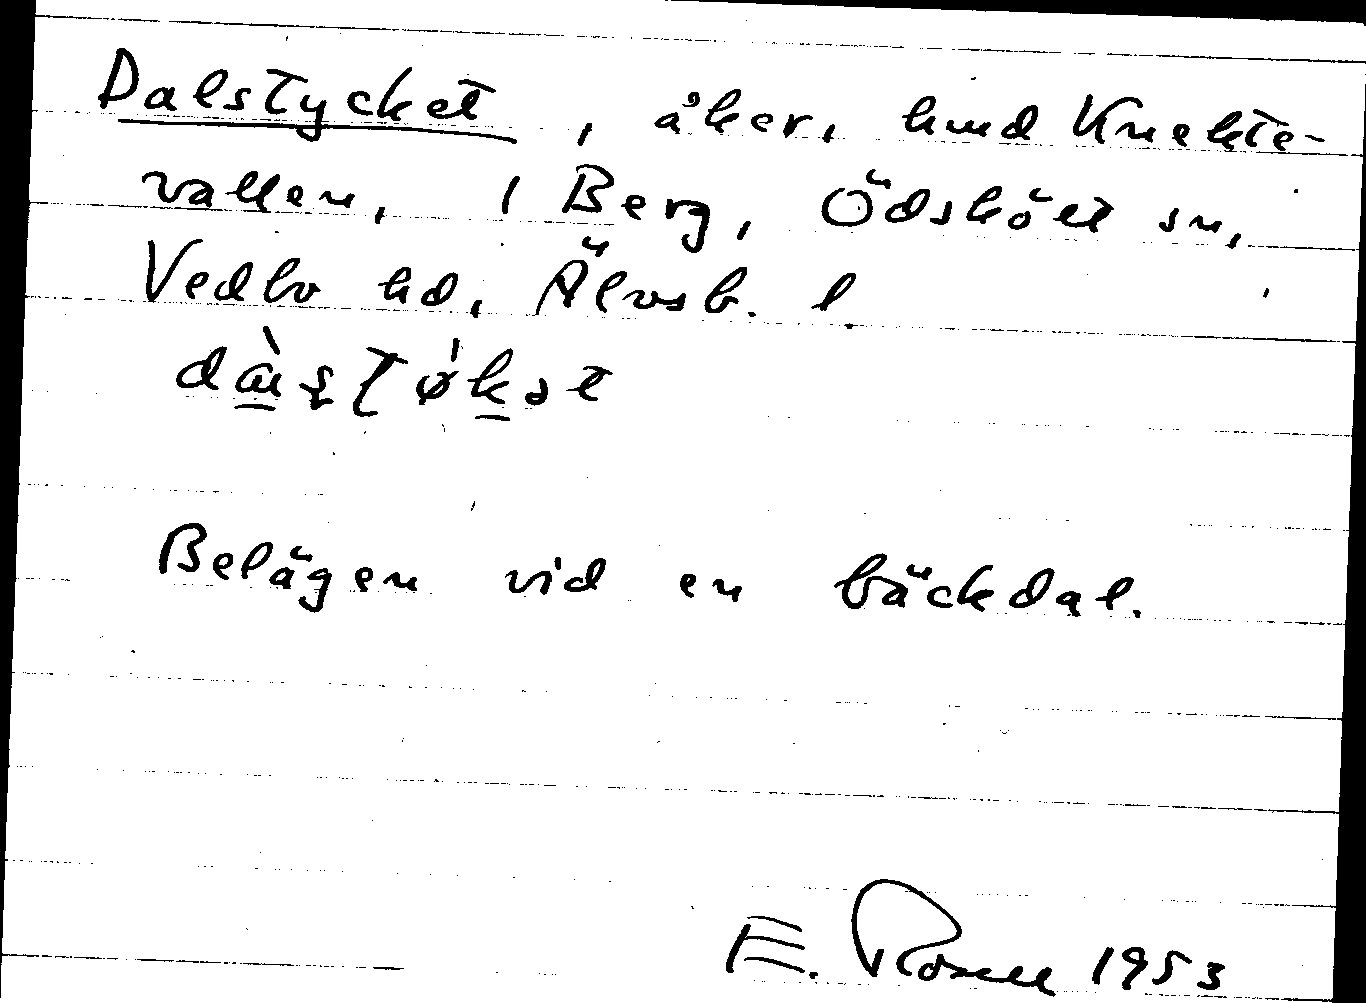 Dalstycket, åker, hmd Knekte-
vallen, 1 Berg, Ödskölt sn,
Vedbo hd, Älvsb. l.
Belägen vid en bäckdal.
E. Rosell 1953